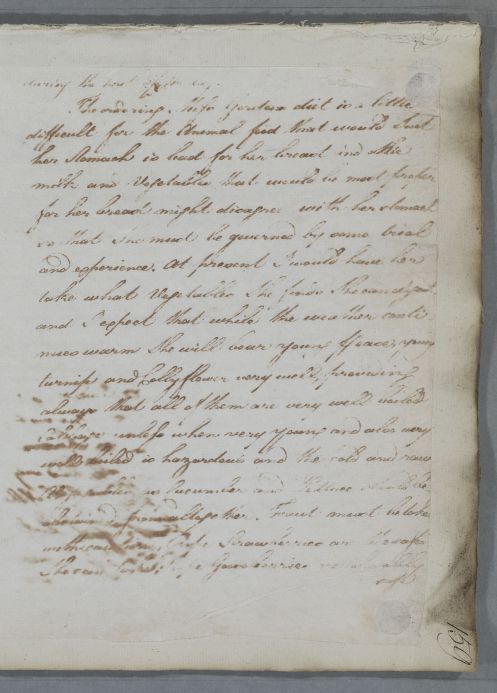 during the heat of the day.
The ordering Miss Gordon's diet is a little
difficult for the Animal food that would suit
her Stomach is bad for her breast and the
milk and Vegetables that would be most proper
for her breast might disagree with her stomach
so that she must be governed by some trial
and experience. At present I would have her
take what Vegetables she finds she can digest
and I expect that while the weather conti-
nues warm she will bear young pease, young
turnips and Collyflower very well, providing
always that all of them are very well boiled
Cabbage unless when very young and also very
well boiled is hazardous and the cold and raw
Vegetables as Cucumber and Lettuce should be
abstained from altogether. Fruit must be taken
with caution, ripe Strawberries are the safest
She can take ripe Gooseberries
159